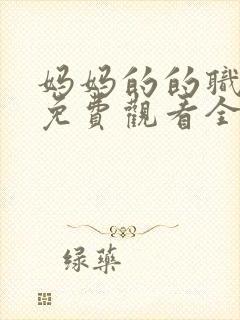 妈妈的的職
免費觀看全
绿藥